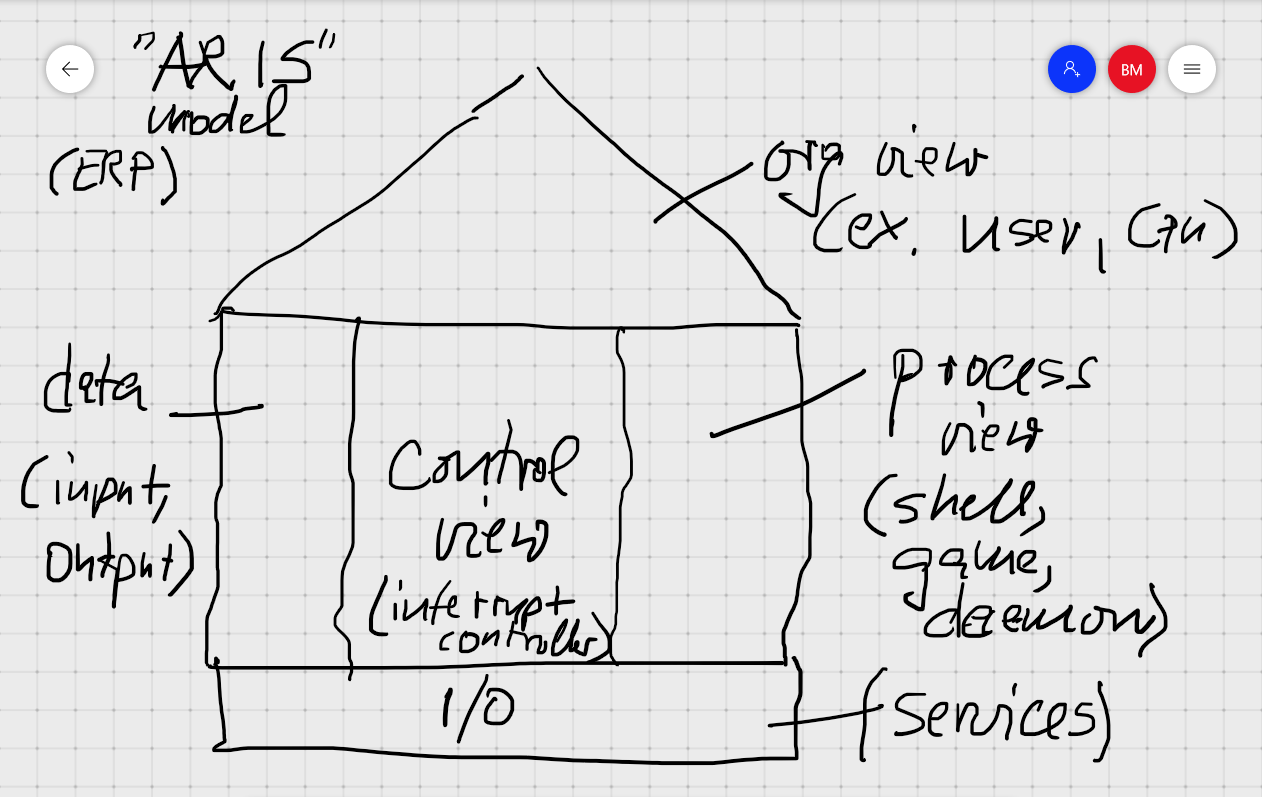 "ARIS"
model
(ERP)
org view
(ex. user, CPU)
data
(input,
output)
Control
view
(interrupt
controller)
process
view
(shell,
game,
daemon)
I/O
(Services)
BM